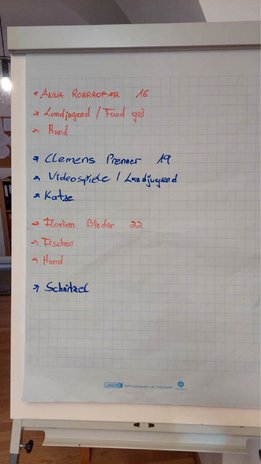 → ANNA ROARHOFER 16
→ Landjugend / Fuad gei
→ Hund
→ Clemens Prenner 19
→ Videospiele / Landjugend
→ Katze
→ Florian Binder 22
→ Fischen
→ Hund
→ Schnitzel
LANDKO